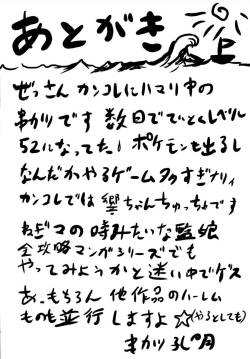 あとがき 上
ぜっさんカンコレにハマり中の
串カツです 数日でていとくレベル
52になってた! ポケモンも出るし
なんだかやるゲーム多すぎナリィ
カンコレでは響ちゃんちゅっちょです
ネギマの時みたいな艦娘
全攻略マンガシリーズでも
やってみようかと迷い中でゲス
あ、もちろん他作品のハーレム
ものも並行しますよ☆(やるとしても)
串カツ